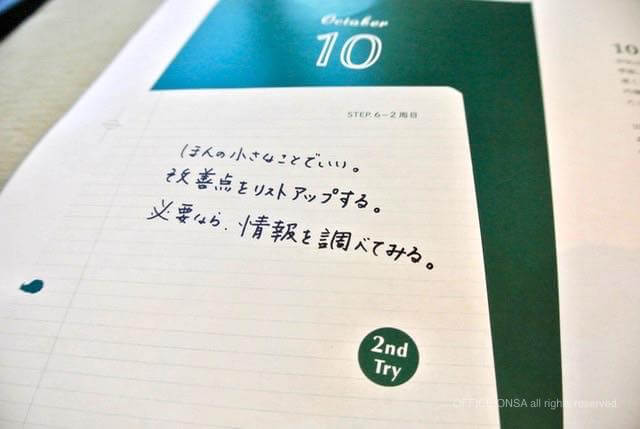 October
10
STEP.6-2周目
ほんの小さなことでいい。
改善点をリストアップする。
必要なら、情報を調べてみる。
2nd
Try
10
OFFICE ONSA all rights reserved.